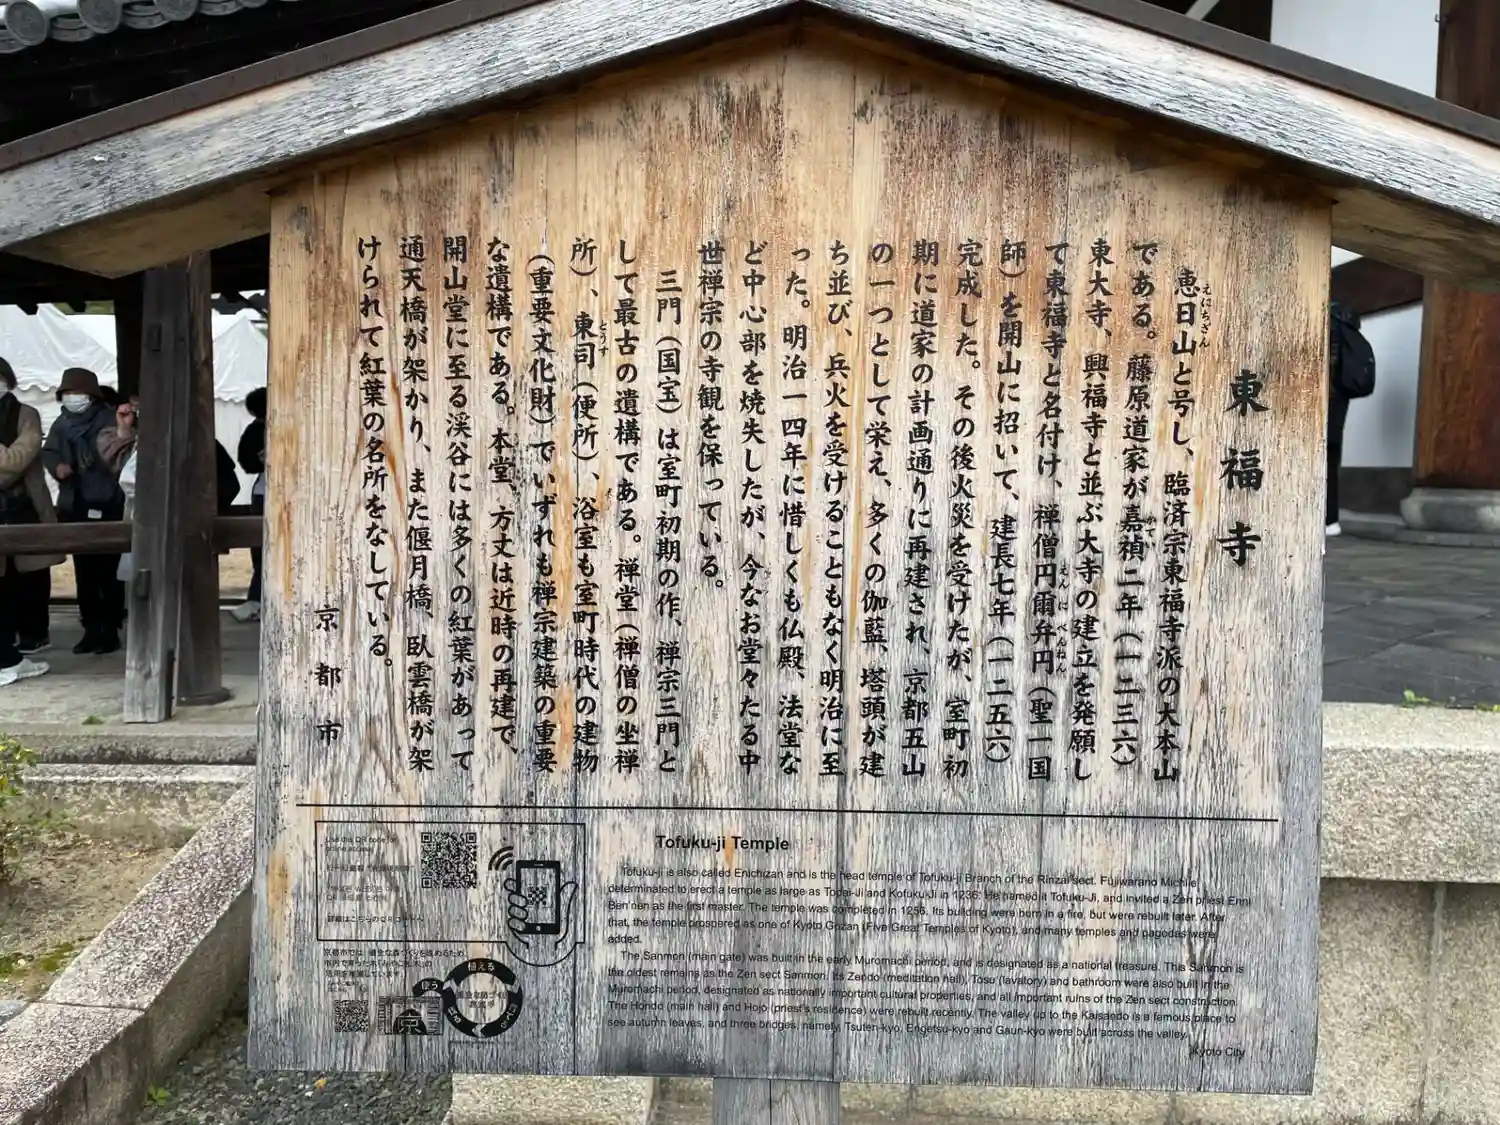 東福寺
恵日山と号し、臨済宗東福寺派の大本山
えにちざん
である。藤原道家が嘉禎二年（一二三六）
かてい
東大寺、興福寺と並ぶ大寺の建立を発願し
て東福寺と名付け、禅僧円爾弁円（聖一国
えんにべんねん
師）を開山に招いて、建長七年（一二五六）
完成した。その後火災を受けたが、室町初
期に道家の計画通りに再建され、京都五山
の一つとして栄え、多くの伽藍、塔頭が建
ち並び、兵火を受けることもなく明治に至
った。明治一四年に惜しくも仏殿、法堂な
ど中心部を焼失したが、今なお堂々たる中
世禅宗の寺観を保っている。
三門（国宝）は室町初期の作、禅宗三門と
して最古の遺構である。禅堂（禅僧の坐禅
所）、東司（便所）、浴室も室町時代の建物
とうす
（重要文化財）でいずれも禅宗建築の重要
な遺構である。本堂、方丈は近時の再建で、
開山堂に至る渓谷には多くの紅葉があって
通天橋が架かり、また偃月橋、臥雲橋が架
けられて紅葉の名所をなしている。
京都市
Tofuku-ji Temple
Tofuku-ji is also called Enichizan and is the head temple of Tofuku-ji Branch of the Rinzai sect. Fujiwarano Michiie
determined to erect a temple as large as Todai-Ji and Kofuku-Ji in 1236. He named it Tofuku-Ji, and invited a Zen priest Enni
Ben'nen as the first master. The temple was completed in 1256. Its building were born in a fire, but were rebuilt later. After
that, the temple prospered as one of Kyoto Gozan (Five Great Temples of Kyoto), and many temples and pagodas were
added.
The Sanmon (main gate) was built in the early Muromachi period, and is designated as a national treasure. This Sanmon is
the oldest remains as the Zen sect Sanmon. Its Zendo (meditation hall), Tosu (lavatory) and bathroom were also built in the
Muromachi period, designated as nationally important cultural properties, and all important ruins of the Zen sect construction.
The Hondo (main hall) and Hojo (priest's residence) were rebuilt recently. The valley up to the Kaisando is a famous place to
see autumn leaves, and three bridges, namely, Tsuten-kyo, Engetsu-kyo and Gaun-kyo were built across the valley.
Kyoto City
Use this QR code for
詳細はこちらのQRコードへ
植える
使う
京